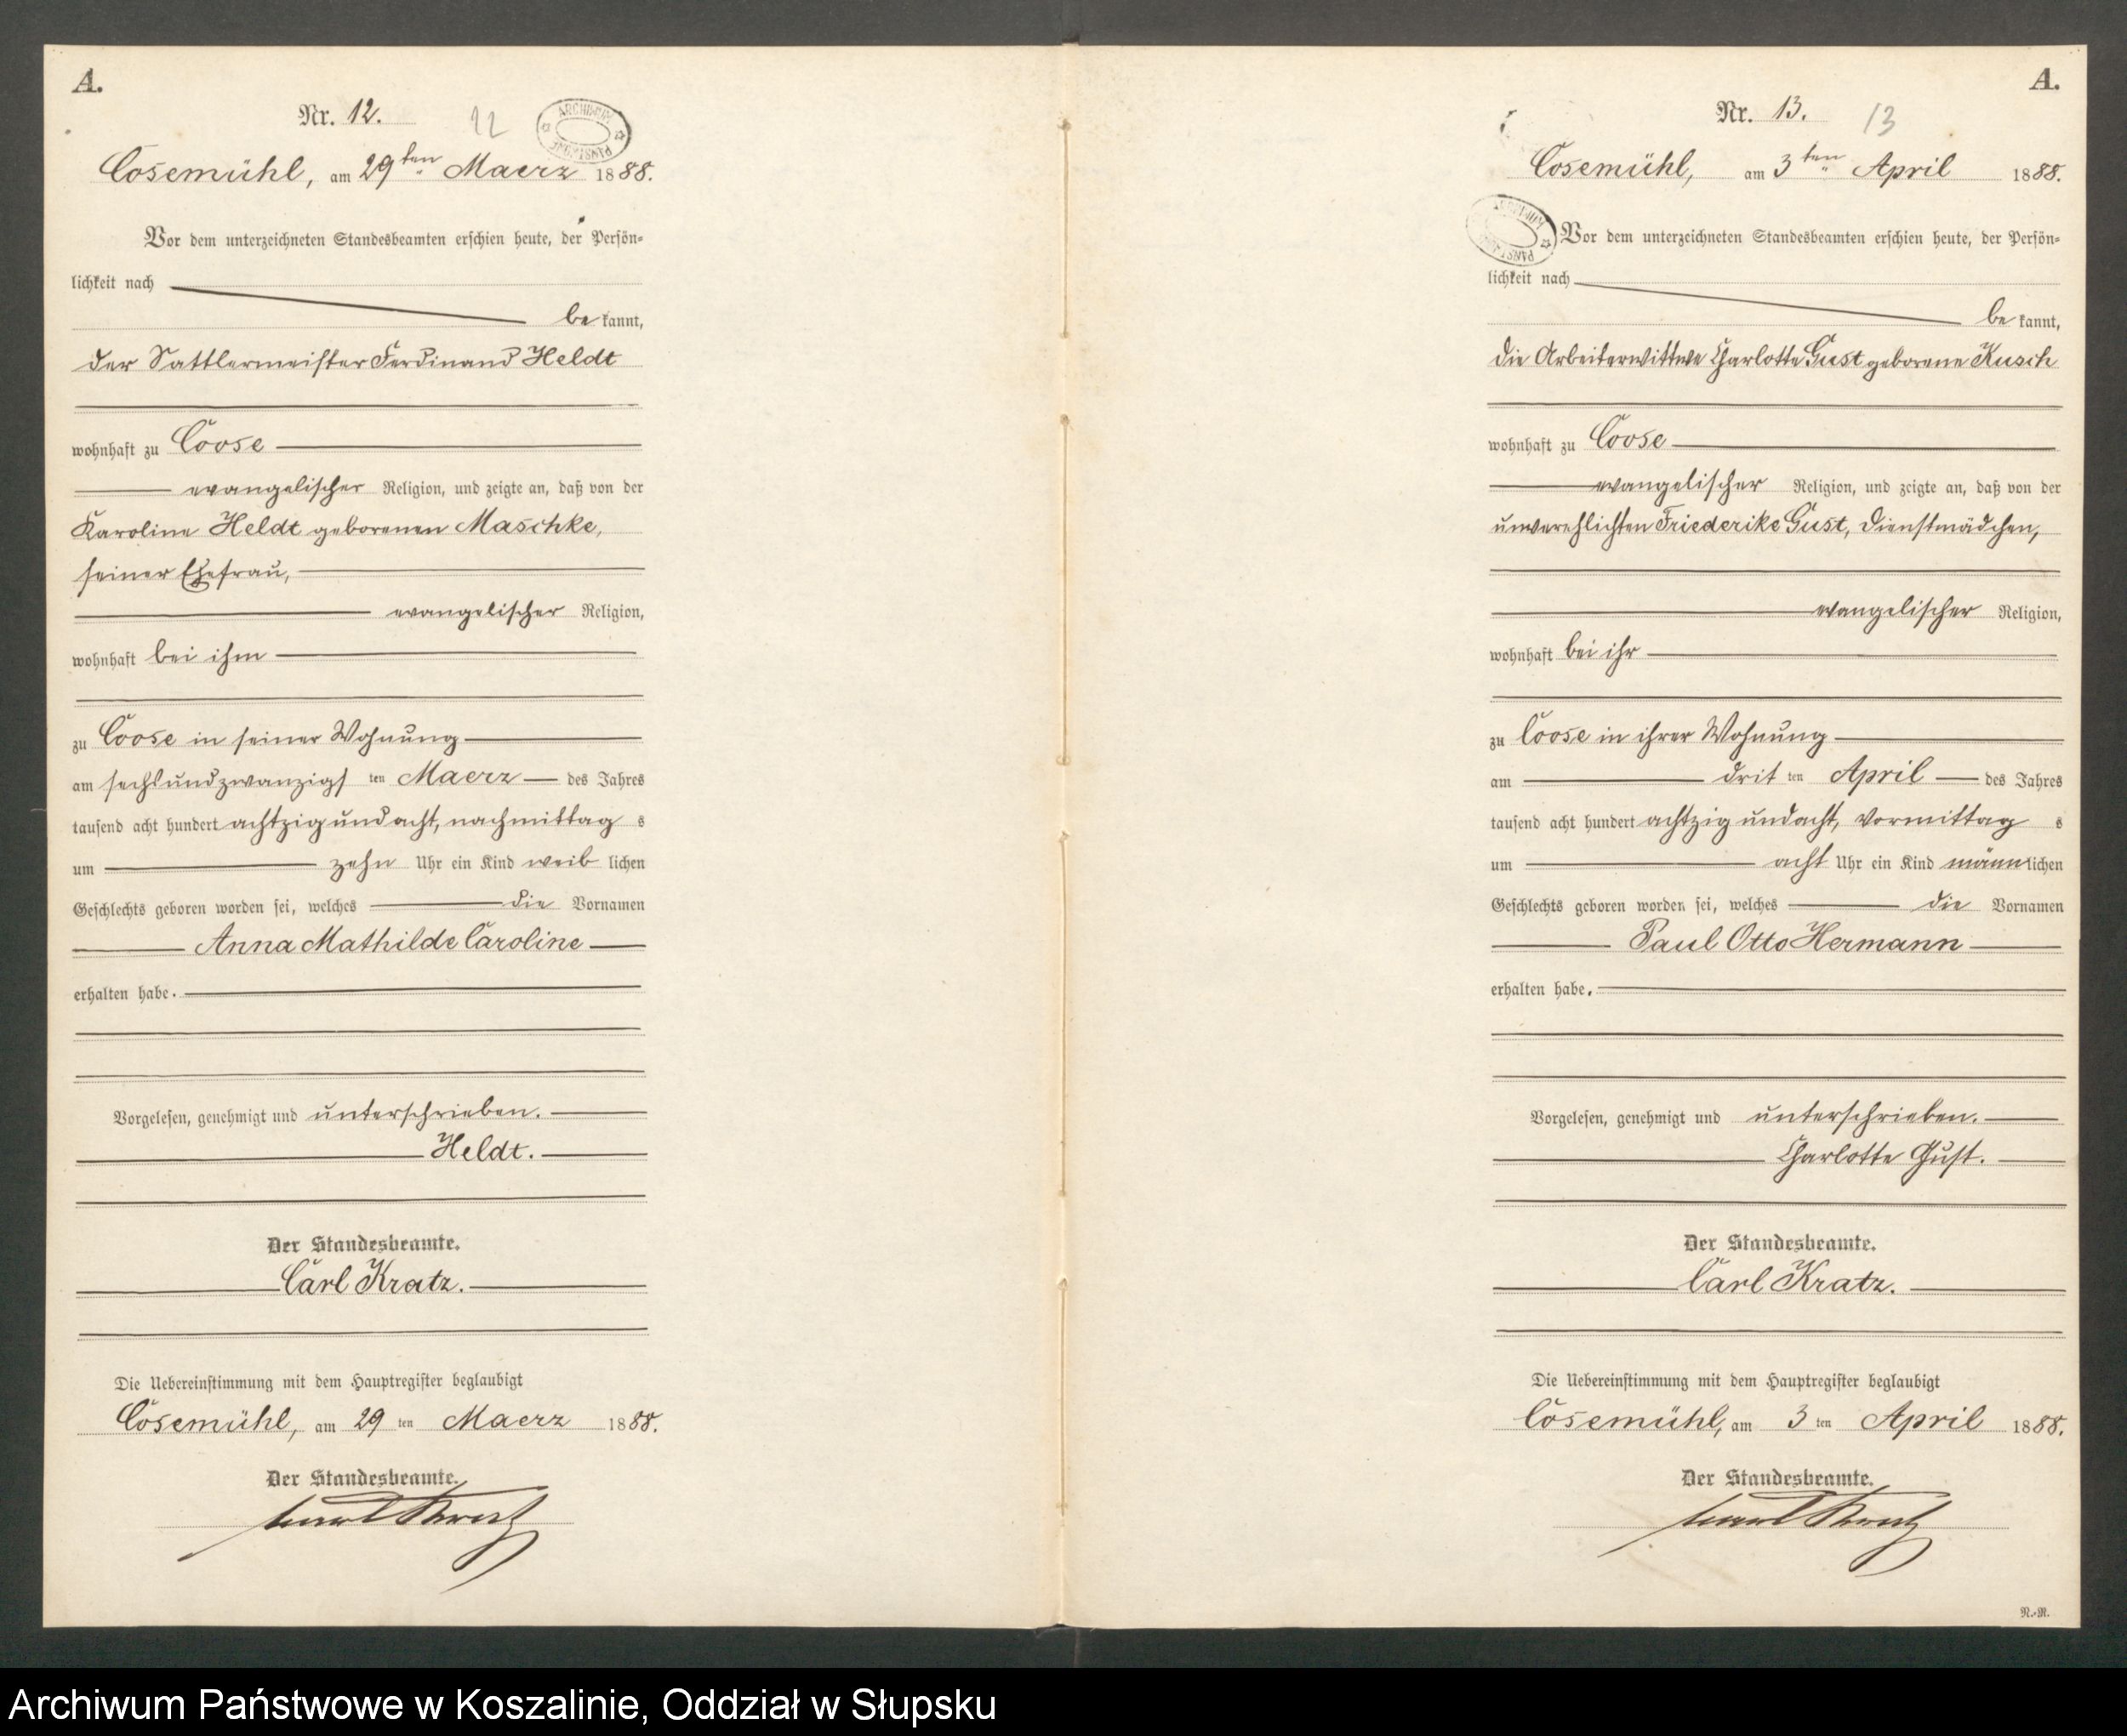 A.
Nr. 12.
12
ARCHIWUM PAŃSTWOWE
Cösemühl, am 29ten Maerz 1888.
Vor dem unterzeichneten Standesbeamten erschien heute, der Persön=
lichkeit nach
be kannt,
der Sattlermeister Ferdinand Heldt
wohnhaft zu Coose
evangelischer Religion, und zeigte an, daß von der
Karoline Heldt geborenen Maschke,
seiner Ehefrau,
evangelischer Religion,
wohnhaft bei ihm
zu Coose in seiner Wohnung
am sechsundzwanzigs ten Maerz des Jahres
tausend acht hundert achtzig und acht, nachmittag s
um zehn Uhr ein Kind weib lichen
Geschlechts geboren worden sei, welches die Vornamen
Anna Mathilde Caroline
erhalten habe.
Vorgelesen, genehmigt und unterschrieben.
Heldt.
Der Standesbeamte.
Carl Kratz.
Die Uebereinstimmung mit dem Hauptregister beglaubigt
Cösemühl, am 29 ten Maerz 1888.
Der Standesbeamte.
Carl Kratz
A.
Nr. 13.
13
Cösemühl, am 3ten April 1888.
ARCHIWUM PAŃSTWOWE
Vor dem unterzeichneten Standesbeamten erschien heute, der Persön=
lichkeit nach
be kannt,
die Arbeiterwittwe Charlotte Gust geborene Kusch
wohnhaft zu Coose
evangelischer Religion, und zeigte an, daß von der
unverehlichten Friederike Gust, Dienstmädchen,
evangelischer Religion,
wohnhaft bei ihr
zu Coose in ihrer Wohnung
am drit ten April des Jahres
tausend acht hundert achtzig und acht, vormittag s
um acht Uhr ein Kind männ lichen
Geschlechts geboren worden sei, welches die Vornamen
Paul Otto Hermann
erhalten habe.
Vorgelesen, genehmigt und unterschrieben.
Charlotte Gust.
Der Standesbeamte.
Carl Kratz.
Die Uebereinstimmung mit dem Hauptregister beglaubigt
Cösemühl, am 3 ten April 1888.
Der Standesbeamte.
Carl Kratz
N.-N.
Archiwum Państwowe w Koszalinie, Oddział w Słupsku